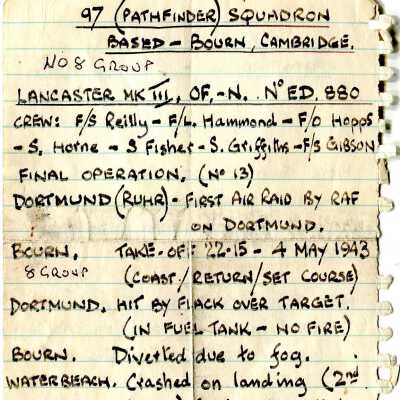 97 (PATHFINDER) SQUADRON
BASED - BOURN, CAMBRIDGE.
No 8 GROUP
LANCASTER MK III, OF,-N. No ED. 880
CREW: F/S Reilly - F/L. Hammond - F/O Hopps
- S. Horne - S Fisher - S. Griffiths - F/S GIBSON
FINAL OPERATION. (No 13)
DORTMUND (RUHR) - FIRST AIR RAID BY RAF
ON DORTMUND.
BOURN. TAKE-OF: 22-15 - 4 MAY 1943
8 GROUP (COAST/RETURN/SET COURSE)
DORTMUND. HIT BY FLACK OVER TARGET.
(IN FUEL TANK - NO FIRE)
BOURN. Diverted due to fog.
WATERBEACH. Crashed on landing (2nd